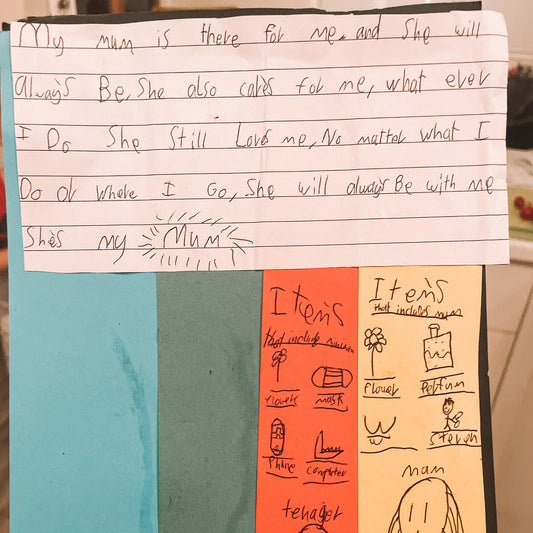 My mum is there for me, and She will
always Be, She also cares for me, what ever
I Do She Still Loves me, No matter what I
Do or where I Go, She will always Be with me
She's my Mum
Items
that include
flowers mask
Phone computer
tenager
Items
that includes mum
flower Perfum
Steven
mam